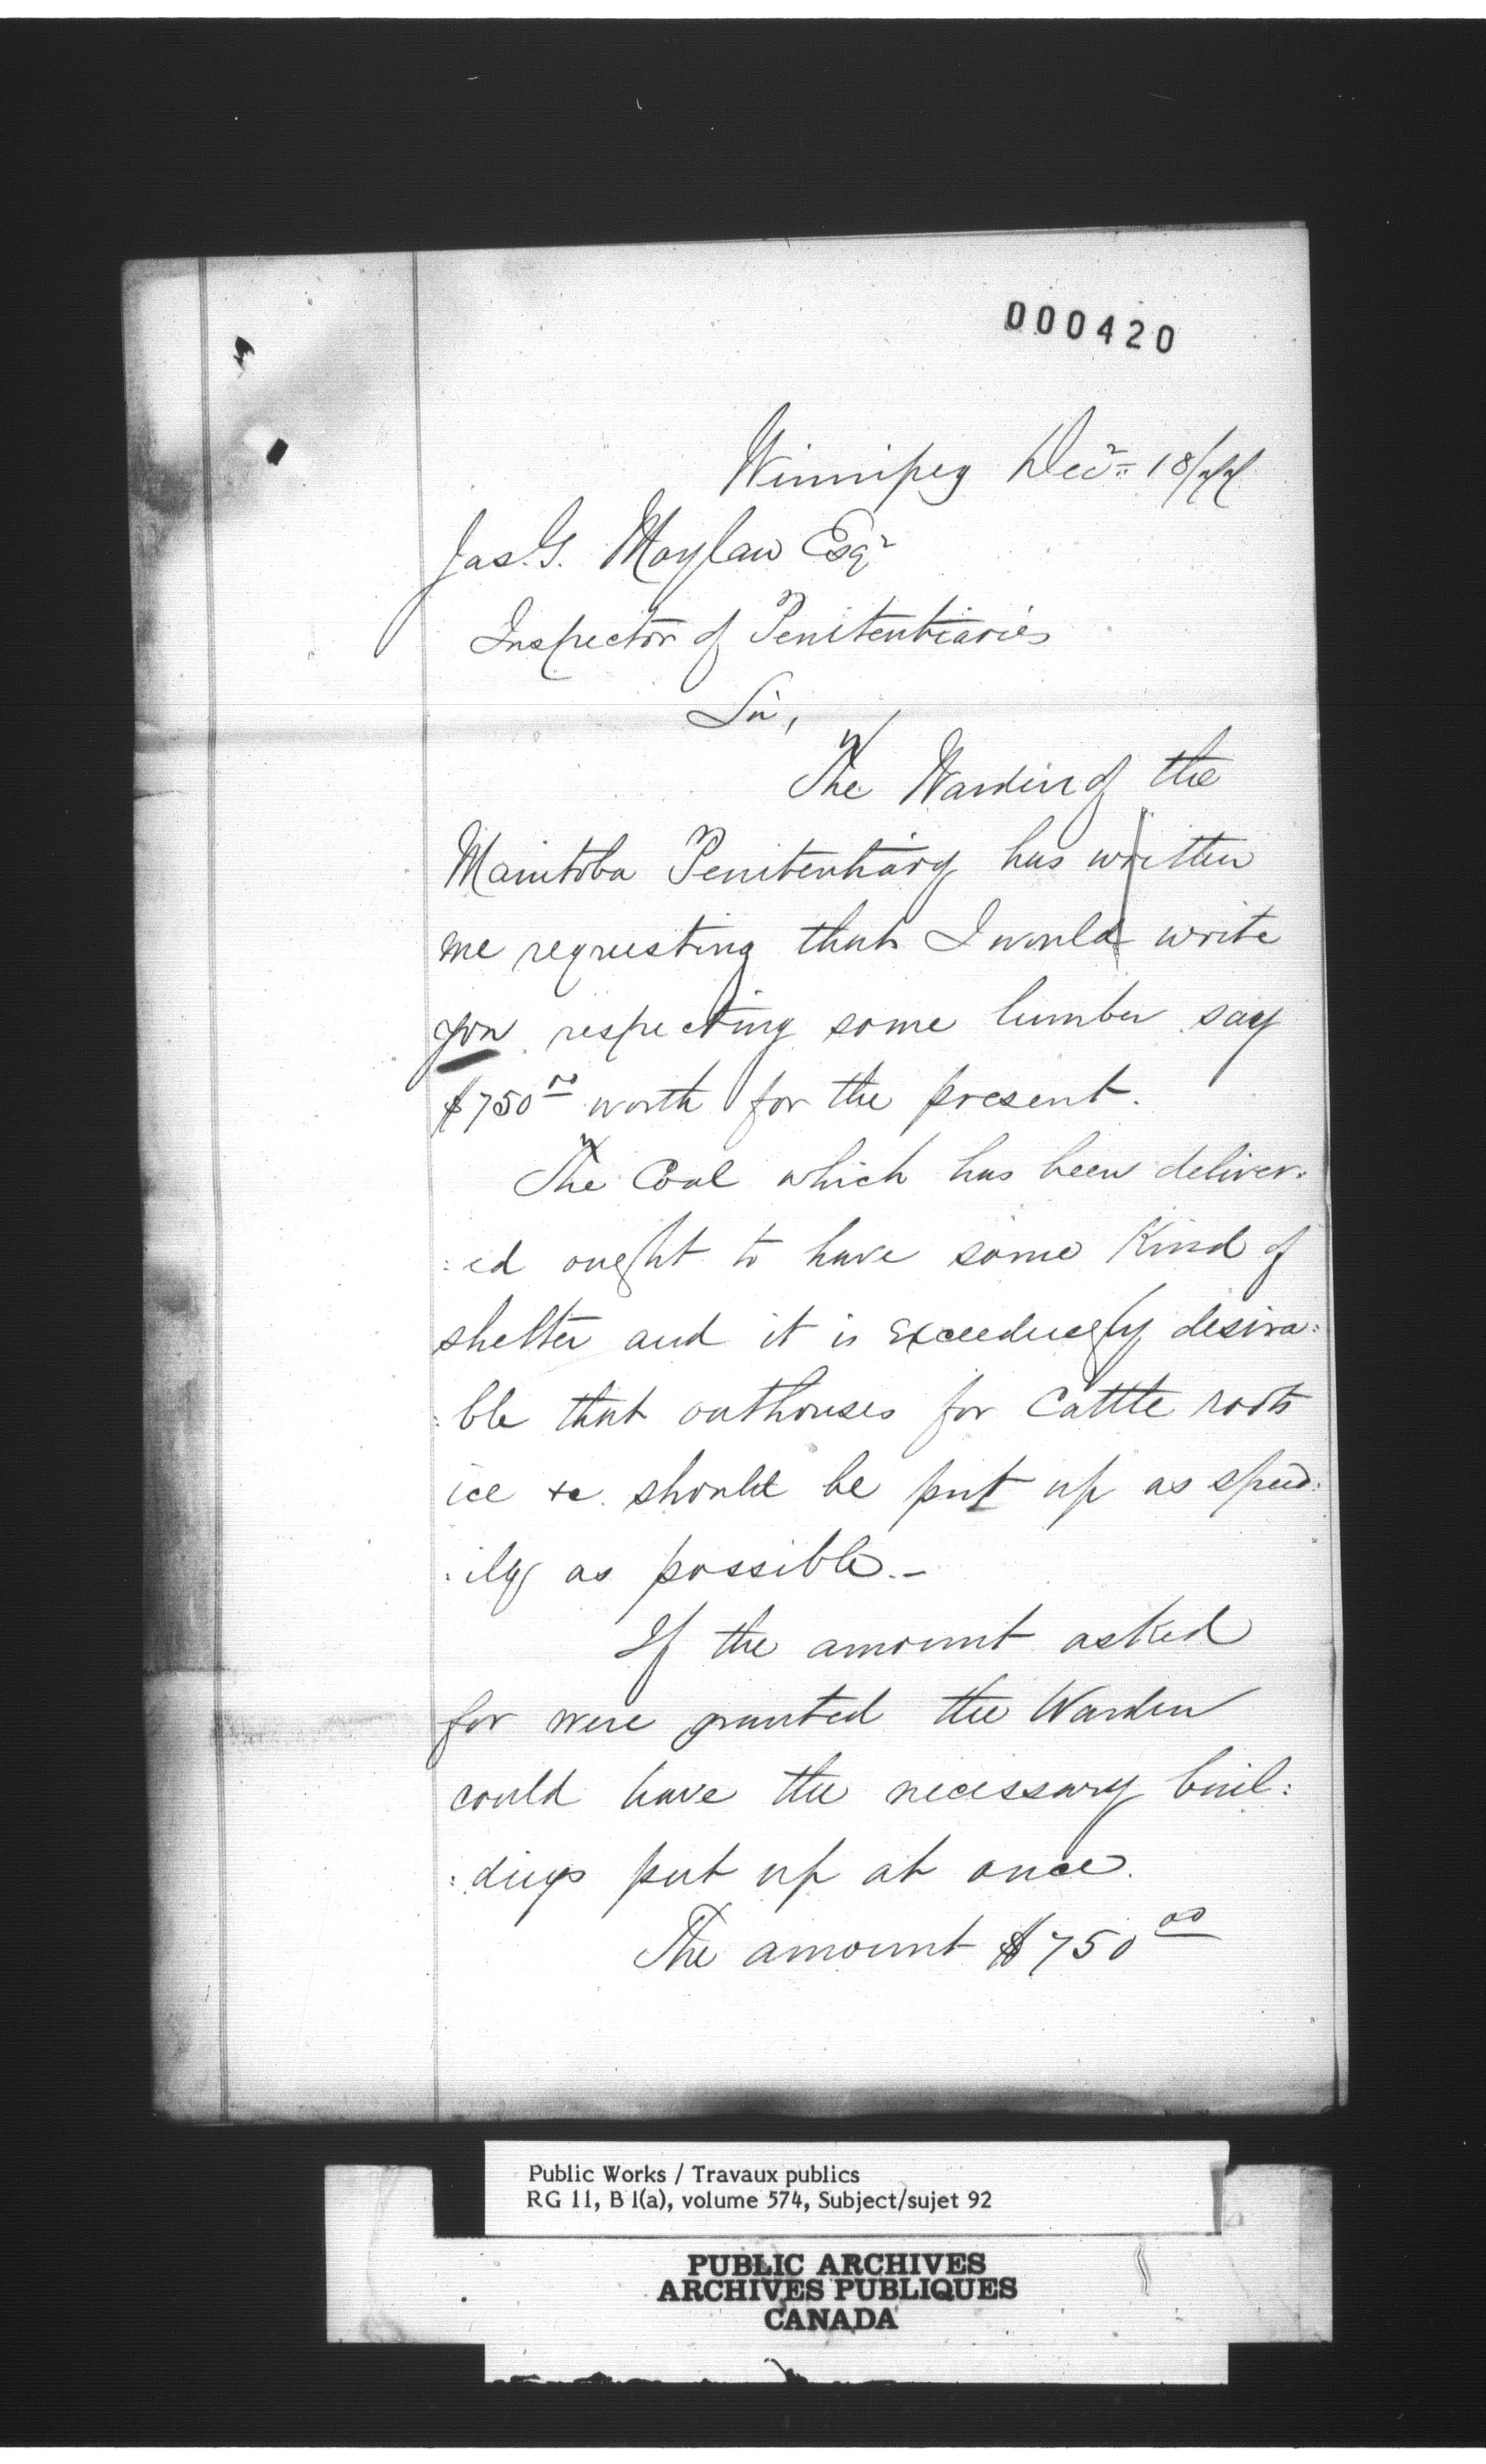 000420
Winnipeg Decr 18/77
Jas. G. Moylan Esqr
Inspector of Penitentiaries
Sir,
The Warden of the
Manitoba Penitentiary has written
me requesting that I would write
you respecting some lumber say
$750 00 worth for the present.
The Coal which has been deliver:
:ed ought to have some Kind of
shelter and it is exceedingly desira:
:ble that outhouses for Cattle roots
ice &c. should be put up as speed:
:ily as possible.-
If the amount asked
for were granted the Warden
could have the necessary buil:
:dings put up at once.
The amount $750 00
Public Works / Travaux publics
RG 11, B 1(a), volume 574, Subject/sujet 92
PUBLIC ARCHIVES
ARCHIVES PUBLIQUES
CANADA